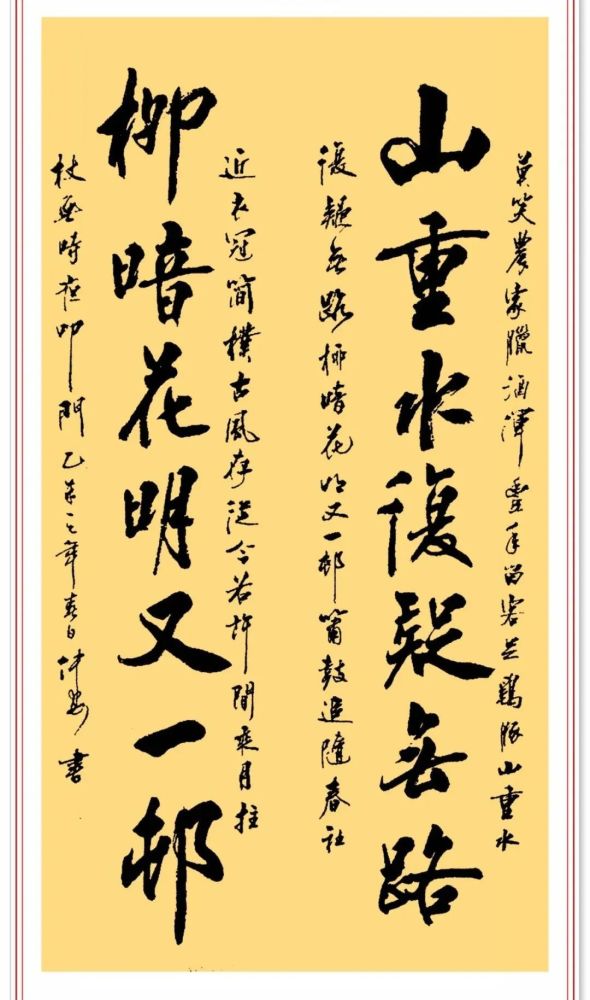 莫笑農家臘酒渾豐年留客足鷄豚山重水
山重水復疑無路
復疑無路柳暗花明又一邨簫鼓追隨春社
近衣冠簡樸古風存從今若許間乘月拄
柳暗花明又一邨
杖無時夜叩門乙未之年春日仲書